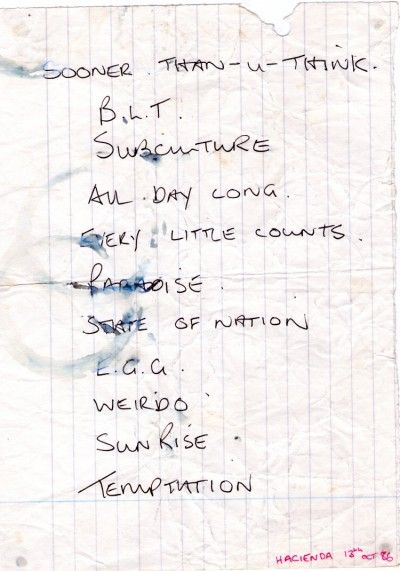 SOONER. THAN-U-THINK.
B.L.T.
SUBCULTURE
ALL DAY LONG.
EVERY LITTLE COUNTS.
PARADISE.
STATE OF NATION
E.G.G.
WEIRDO
SUNRISE
TEMPTATION
HACIENDA 13th OCT 86